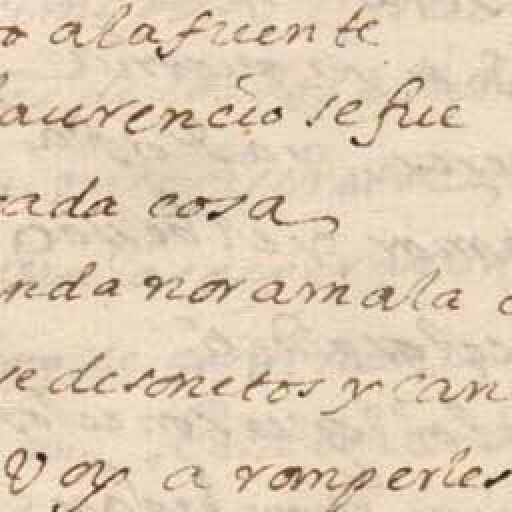 o alafuente
laurencio se fue
cada cosa
anda noramala
de sonetos y can
Voy a romperles